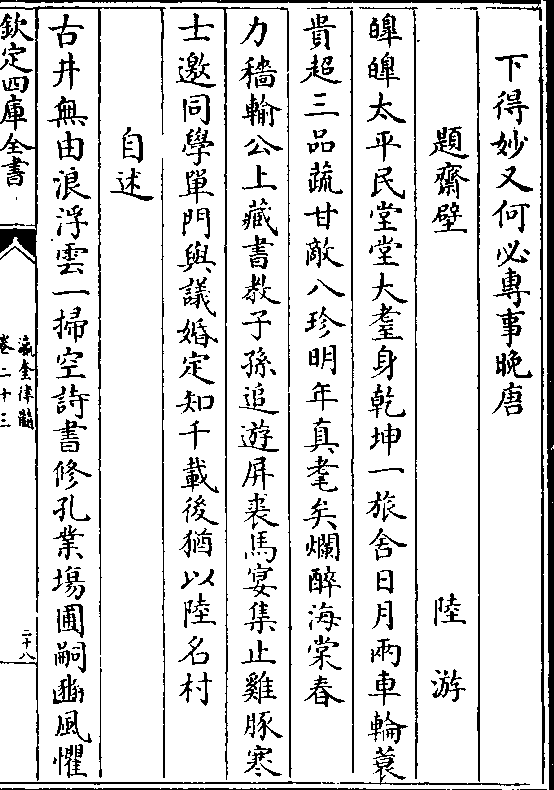 下得妙又何必專事晚唐
題齋壁　陸游
皥皥太平民堂堂大耋身乾坤一旅舍日月兩車輪蓑
貴超三品蔬甘敵八珍明年真耄矣爛醉海棠春
力穡輸公上藏書教子孫追遊屏裘馬宴集止雞豚寒
士邀同學單門與議婚定知千載後猶以陸名村
自述
古井無由浪浮雲一掃空詩書修孔業塲圃嗣豳風懼
欽定四庫全書
瀛奎律髓
卷二十三
二十八